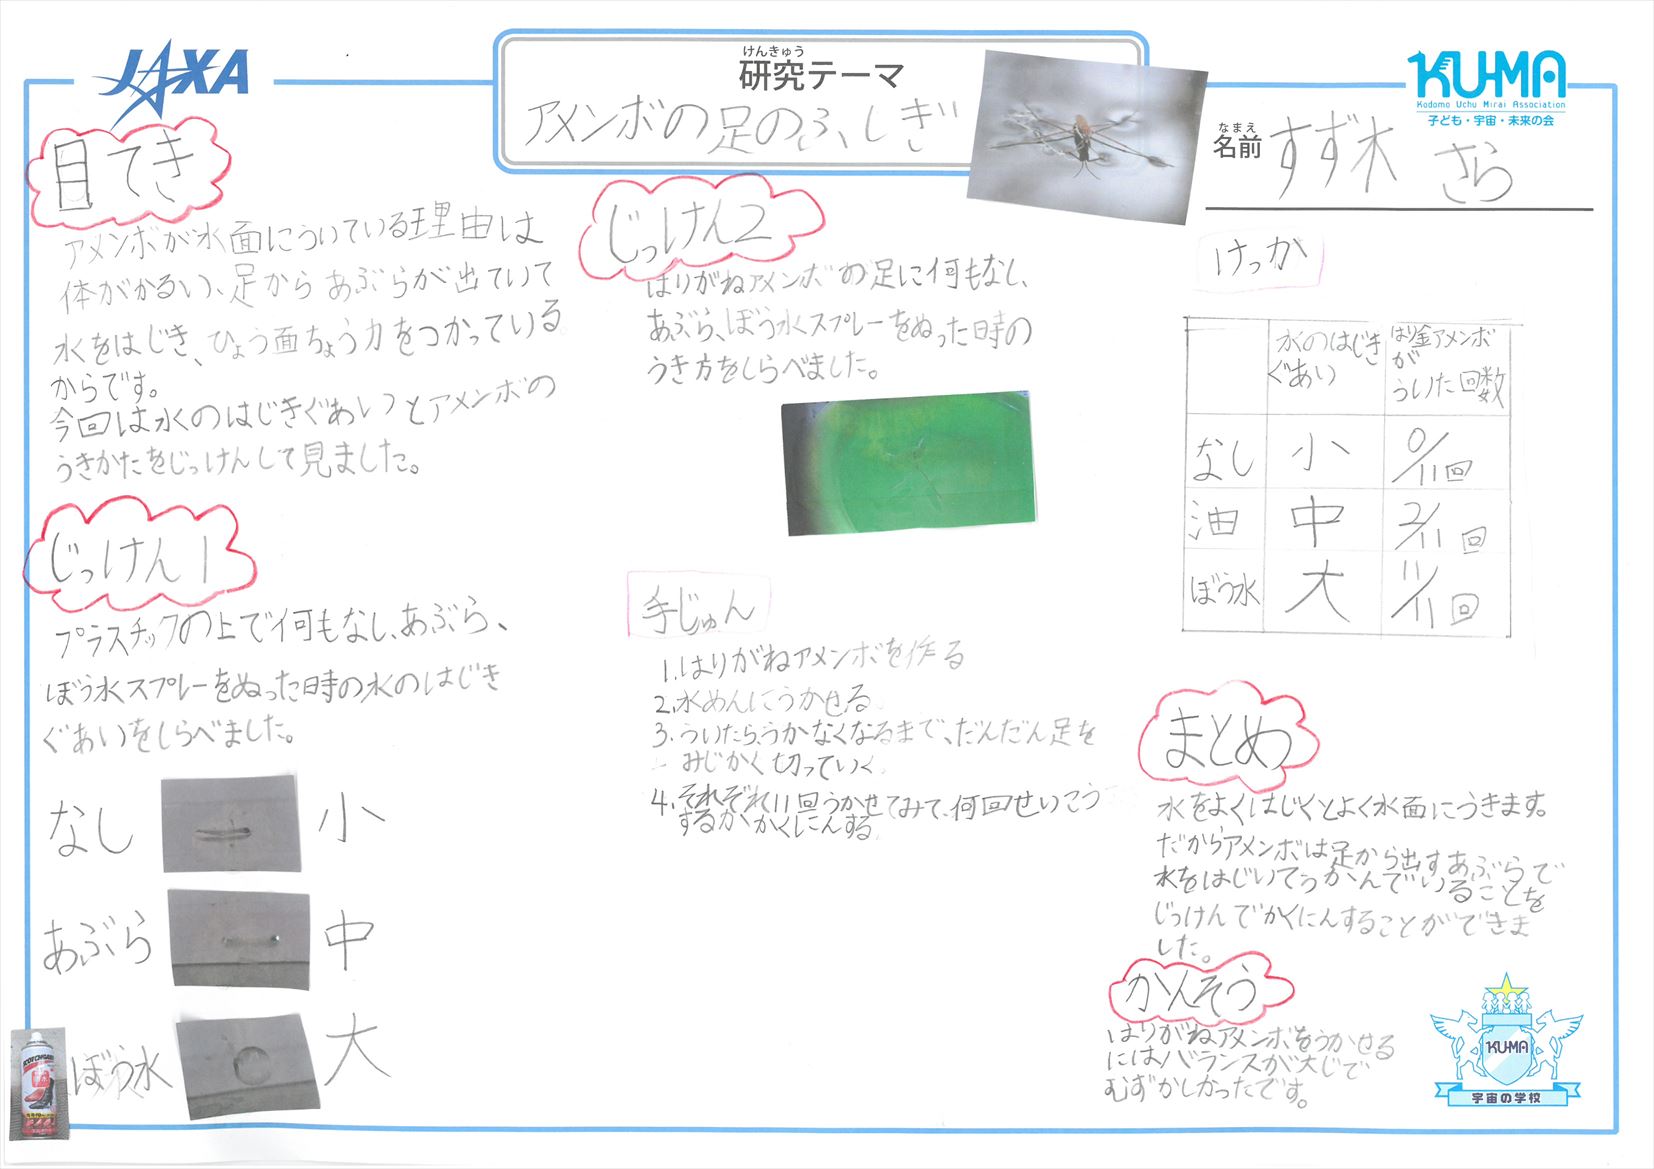 JAXA
けんきゅう
研究テーマ
アメンボの足のふしぎ
KU-MA
Kodomo Uchu Mirai Association
子ども・宇宙・未来の会
なまえ
名前
すず木 さら
目てき
アメンボが水面にういている理由は
体がかるい、足からあぶらが出ていて
水をはじき、ひょう面ちょう力をつかっている
からです。
今回は水のはじきぐあいとアメンボの
うきかたをじっけんして見ました。
じっけん1
プラスチックの上で何もなし、あぶら、
ぼう水スプレーをぬった時の水のはじき
ぐあいをしらべました。
なし 小
あぶら 中
ぼう水 大
じっけん2
はりがねアメンボの足に何もなし、
あぶら、ぼう水スプレーをぬった時の
うき方をしらべました。
手じゅん
1.はりがねアメンボを作る
2.水めんにうかせる
3.ういたら、うかなくなるまで、だんだん足を
みじかく切っていく
4.それぞれ11回うかせてみて、何回せいこう
するかかくにんする
けっか
水のはじき
ぐあい
はり金アメンボ
が
ういた回数
なし 小 0/11回
油 中 2/11回
ぼう水 大 11/11回
まとめ
水をよくはじくとよく水面にうきます。
だからアメンボは足から出すあぶらで
水をはじいてうかんでいることを
じっけんでかくにんすることができま
した。
かんそう
はりがねアメンボをうかせる
にはバランスが大じで
むずかしかったです。
KU-MA
宇宙の学校